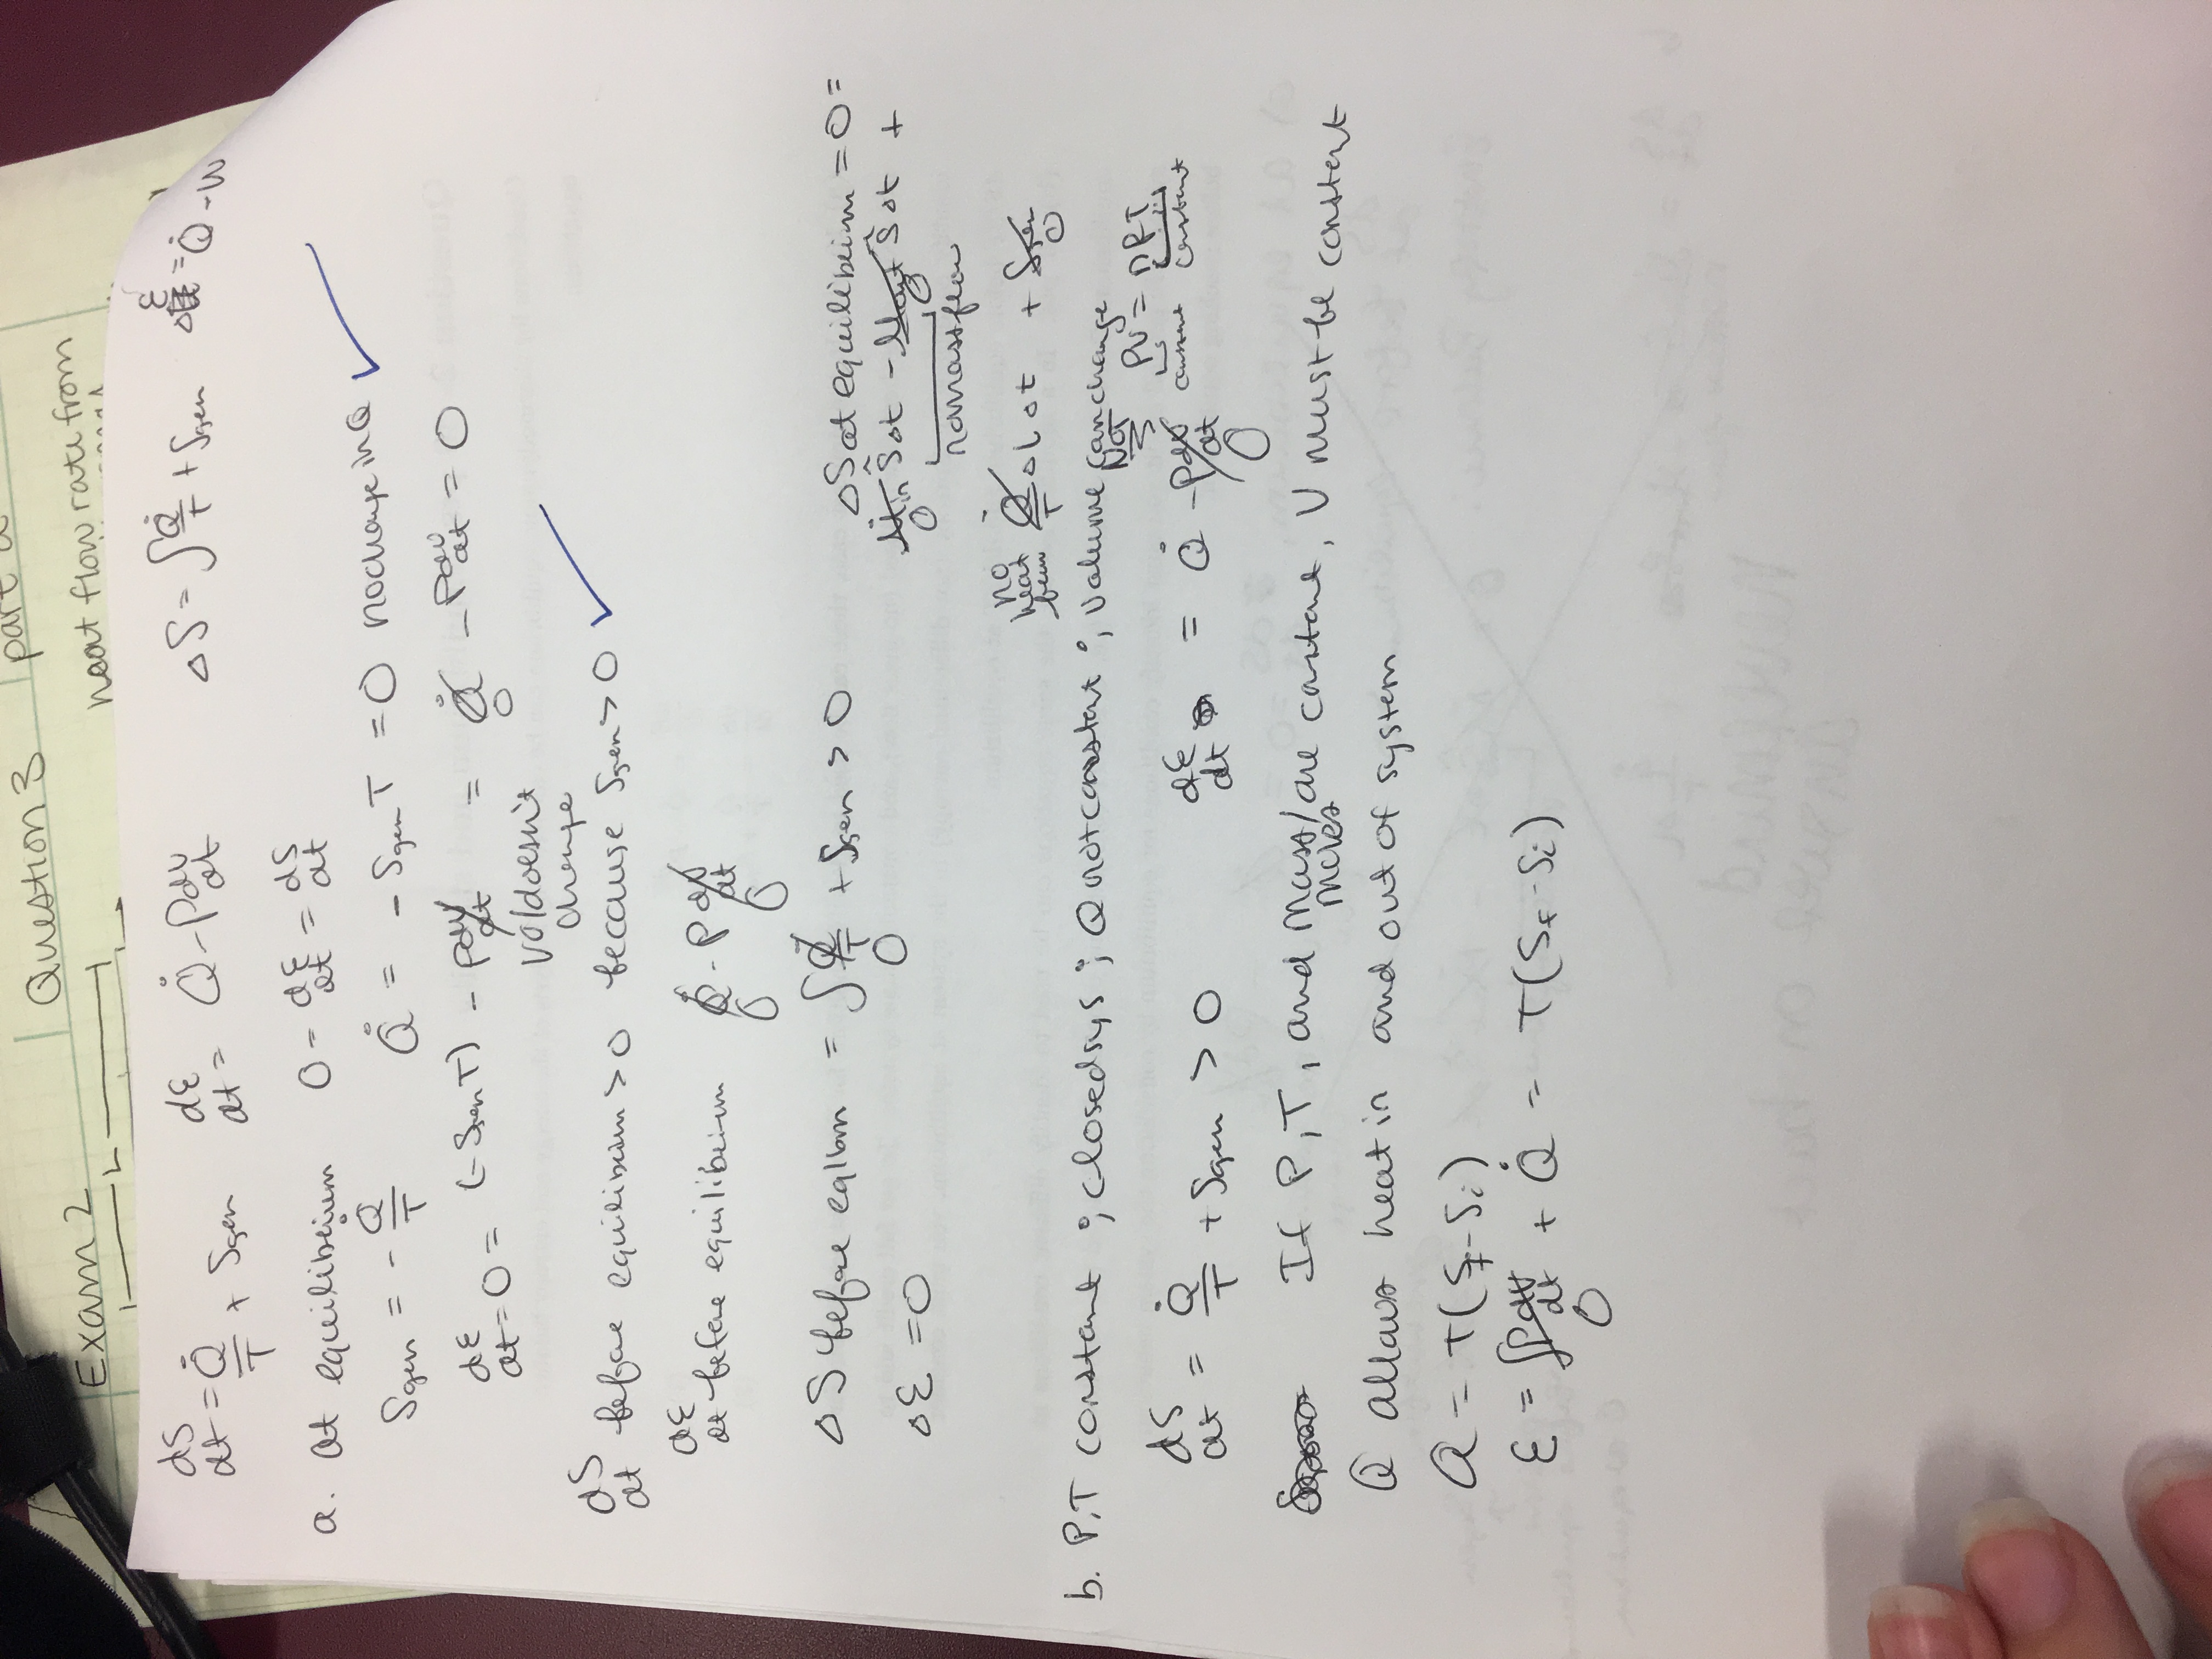 Question 3 part a
Exam 2
L
heat flow rate from
dS/dt = Q̇/T + Sgen dε/dt = Q̇ - P dv/dt ΔS = ∫ Q̇/T + Sgen Δε = Q̇ - W
a. at equilibrium 0 = dε/dt = dS/dt
Sgen = - Q̇/T Q̇ = - Sgen T = 0 no change in Q
dε/dt = 0 = (-Sgen T) - P dv/dt = Q̇ - P dv/dt = 0
0
vol doesn't
change
dS/dt before equilibrium > 0 because Sgen > 0
dε/dt before equilibrium Q̇ - P dv/dt
0 0
ΔS before eqlbm = ∫ Q̇/T + Sgen > 0
0
Δε = 0
ΔS at equilibrium = 0 =
Ṁin Ŝ Δt - Ṁout Ŝ Δt +
0 0
no mass flow
no heat Q̇/T ΔL Δt + Sgen
0
b. P,T constant ; closed sys ; Q not constant ; volume can change
NOT
PV = nRT
constant constant
dS/dt = Q̇/T + Sgen > 0 dε/dt = Q̇ - P dv/dt
0
If P, T, and mass/moles are constant, V must be constant
Q allows heat in and out of system
Q = T(Sf - Si)
ε = ∫P dv/dt + Q̇ = T(Sf - Si)
0